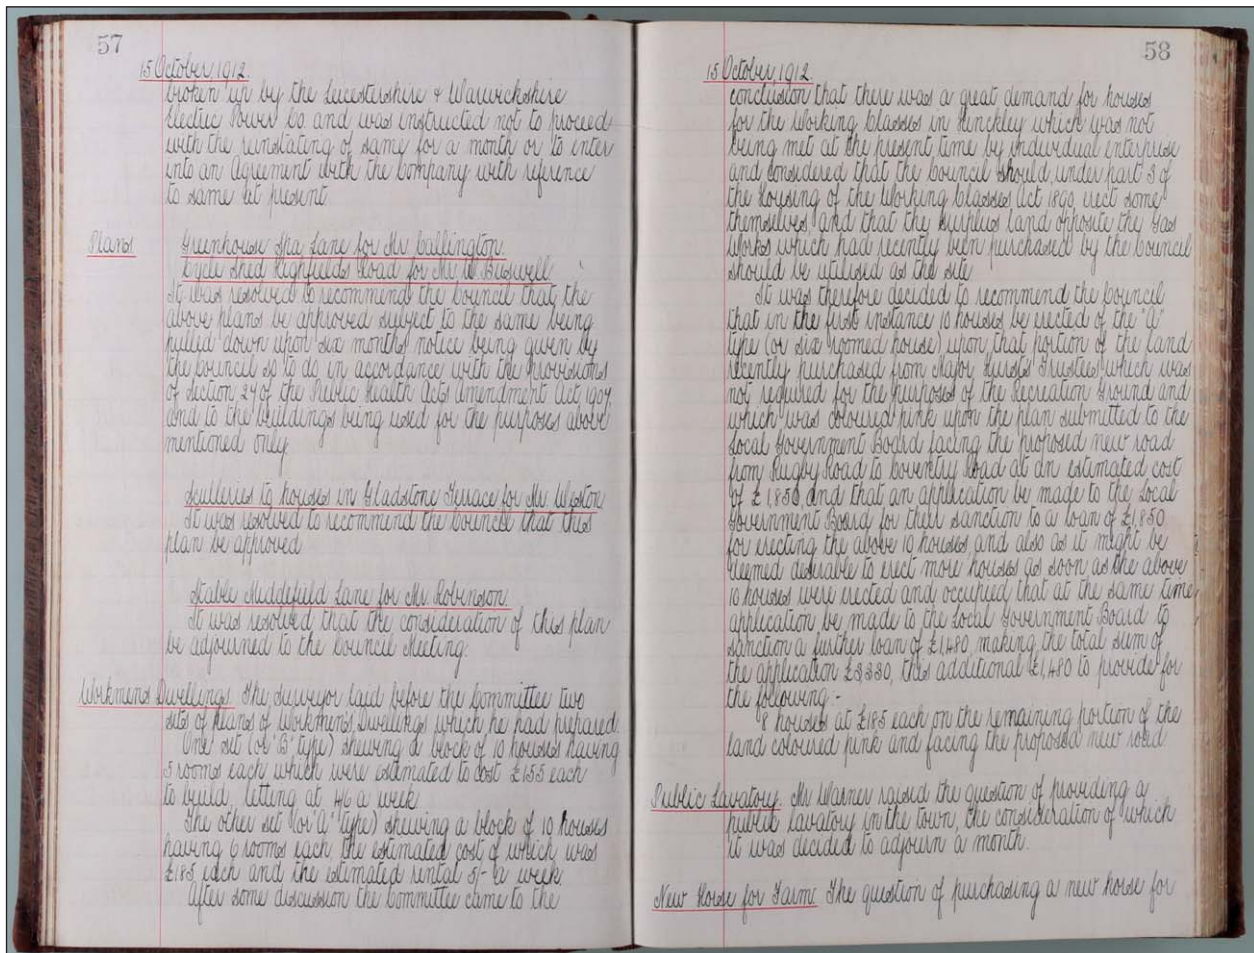 57
15 October 1912.
broken up by the Leicestershire & Warwickshire
Electric Power Co. and was instructed not to proceed
with the reinstating of same for a month or to enter
into an Agreement with the Company with reference
to same at present
Plans
Greenhouse Spa Lane for Mr Callington.
Cycle Shed Highfields Road for Mr W. Buswell
It was resolved to recommend the Council that the
above plans be approved subject to the same being
pulled down upon six months notice being given by
the Council so to do in accordance with the provisions
of Section 27 of the Public Health Acts Amendment Act, 1907
and to the buildings being used for the purposes above
mentioned only.
Sculleries to houses in Gladstone Terrace for Mr. Weston.
It was resolved to recommend the Council that this
plan be approved
Stable Middlefield Lane for Mr Robinson.
It was resolved that the consideration of this plan
be adjourned to the Council Meeting.
Workmens Dwellings. The Surveyor laid before the Committee two
sets of plans of Workmens Dwellings which he had prepared.
One set (or "B" type) shewing a block of 10 houses having
5 rooms each which were estimated to cost £155 each
to build, letting at 4/6 a week.
The other set (or "A" type) shewing a block of 10 houses
having 6 rooms each, the estimated cost of which was
£185 each and the estimated rental 5/- a week.
After some discussion the Committee came to the
58
15 October 1912.
conclusion that there was a great demand for houses
for the Working Classes in Hinckley which was not
being met at the present time by individual enterprise
and considered that the Council should under part 3 of
the Housing of the Working Classes Act 1890, erect some
themselves, and that the surplus land opposite the Gas
Works which had recently been purchased by the Council
should be utilised as the site
It was therefore decided to recommend the Council
that in the first instance 10 houses be erected of the "A"
type (or six roomed house) upon that portion of the land
recently purchased from Major Hurst's Trustees which was
not required for the purposes of the Recreation Ground and
which was coloured pink upon the plan submitted to the
Local Government Board facing the proposed new road
from Rugby Road to Coventry Road at an estimated cost
of £1,850, and that an application be made to the Local
Government Board for their sanction to a loan of £1,850
for erecting the above 10 houses, and also as it might be
deemed desirable to erect more houses as soon as the above
10 houses were erected and occupied that at the same time
application be made to the Local Government Board to
sanction a further loan of £1,480 making the total sum of
the application £3,330, this additional £1,480 to provide for
the following -
8 houses at £185 each on the remaining portion of the
land coloured pink and facing the proposed new road
Public Lavatory. Mr Warner raised the question of providing a
public lavatory in the town, the consideration of which
it was decided to adjourn a month.
New Horse for Farm. The question of purchasing a new horse for